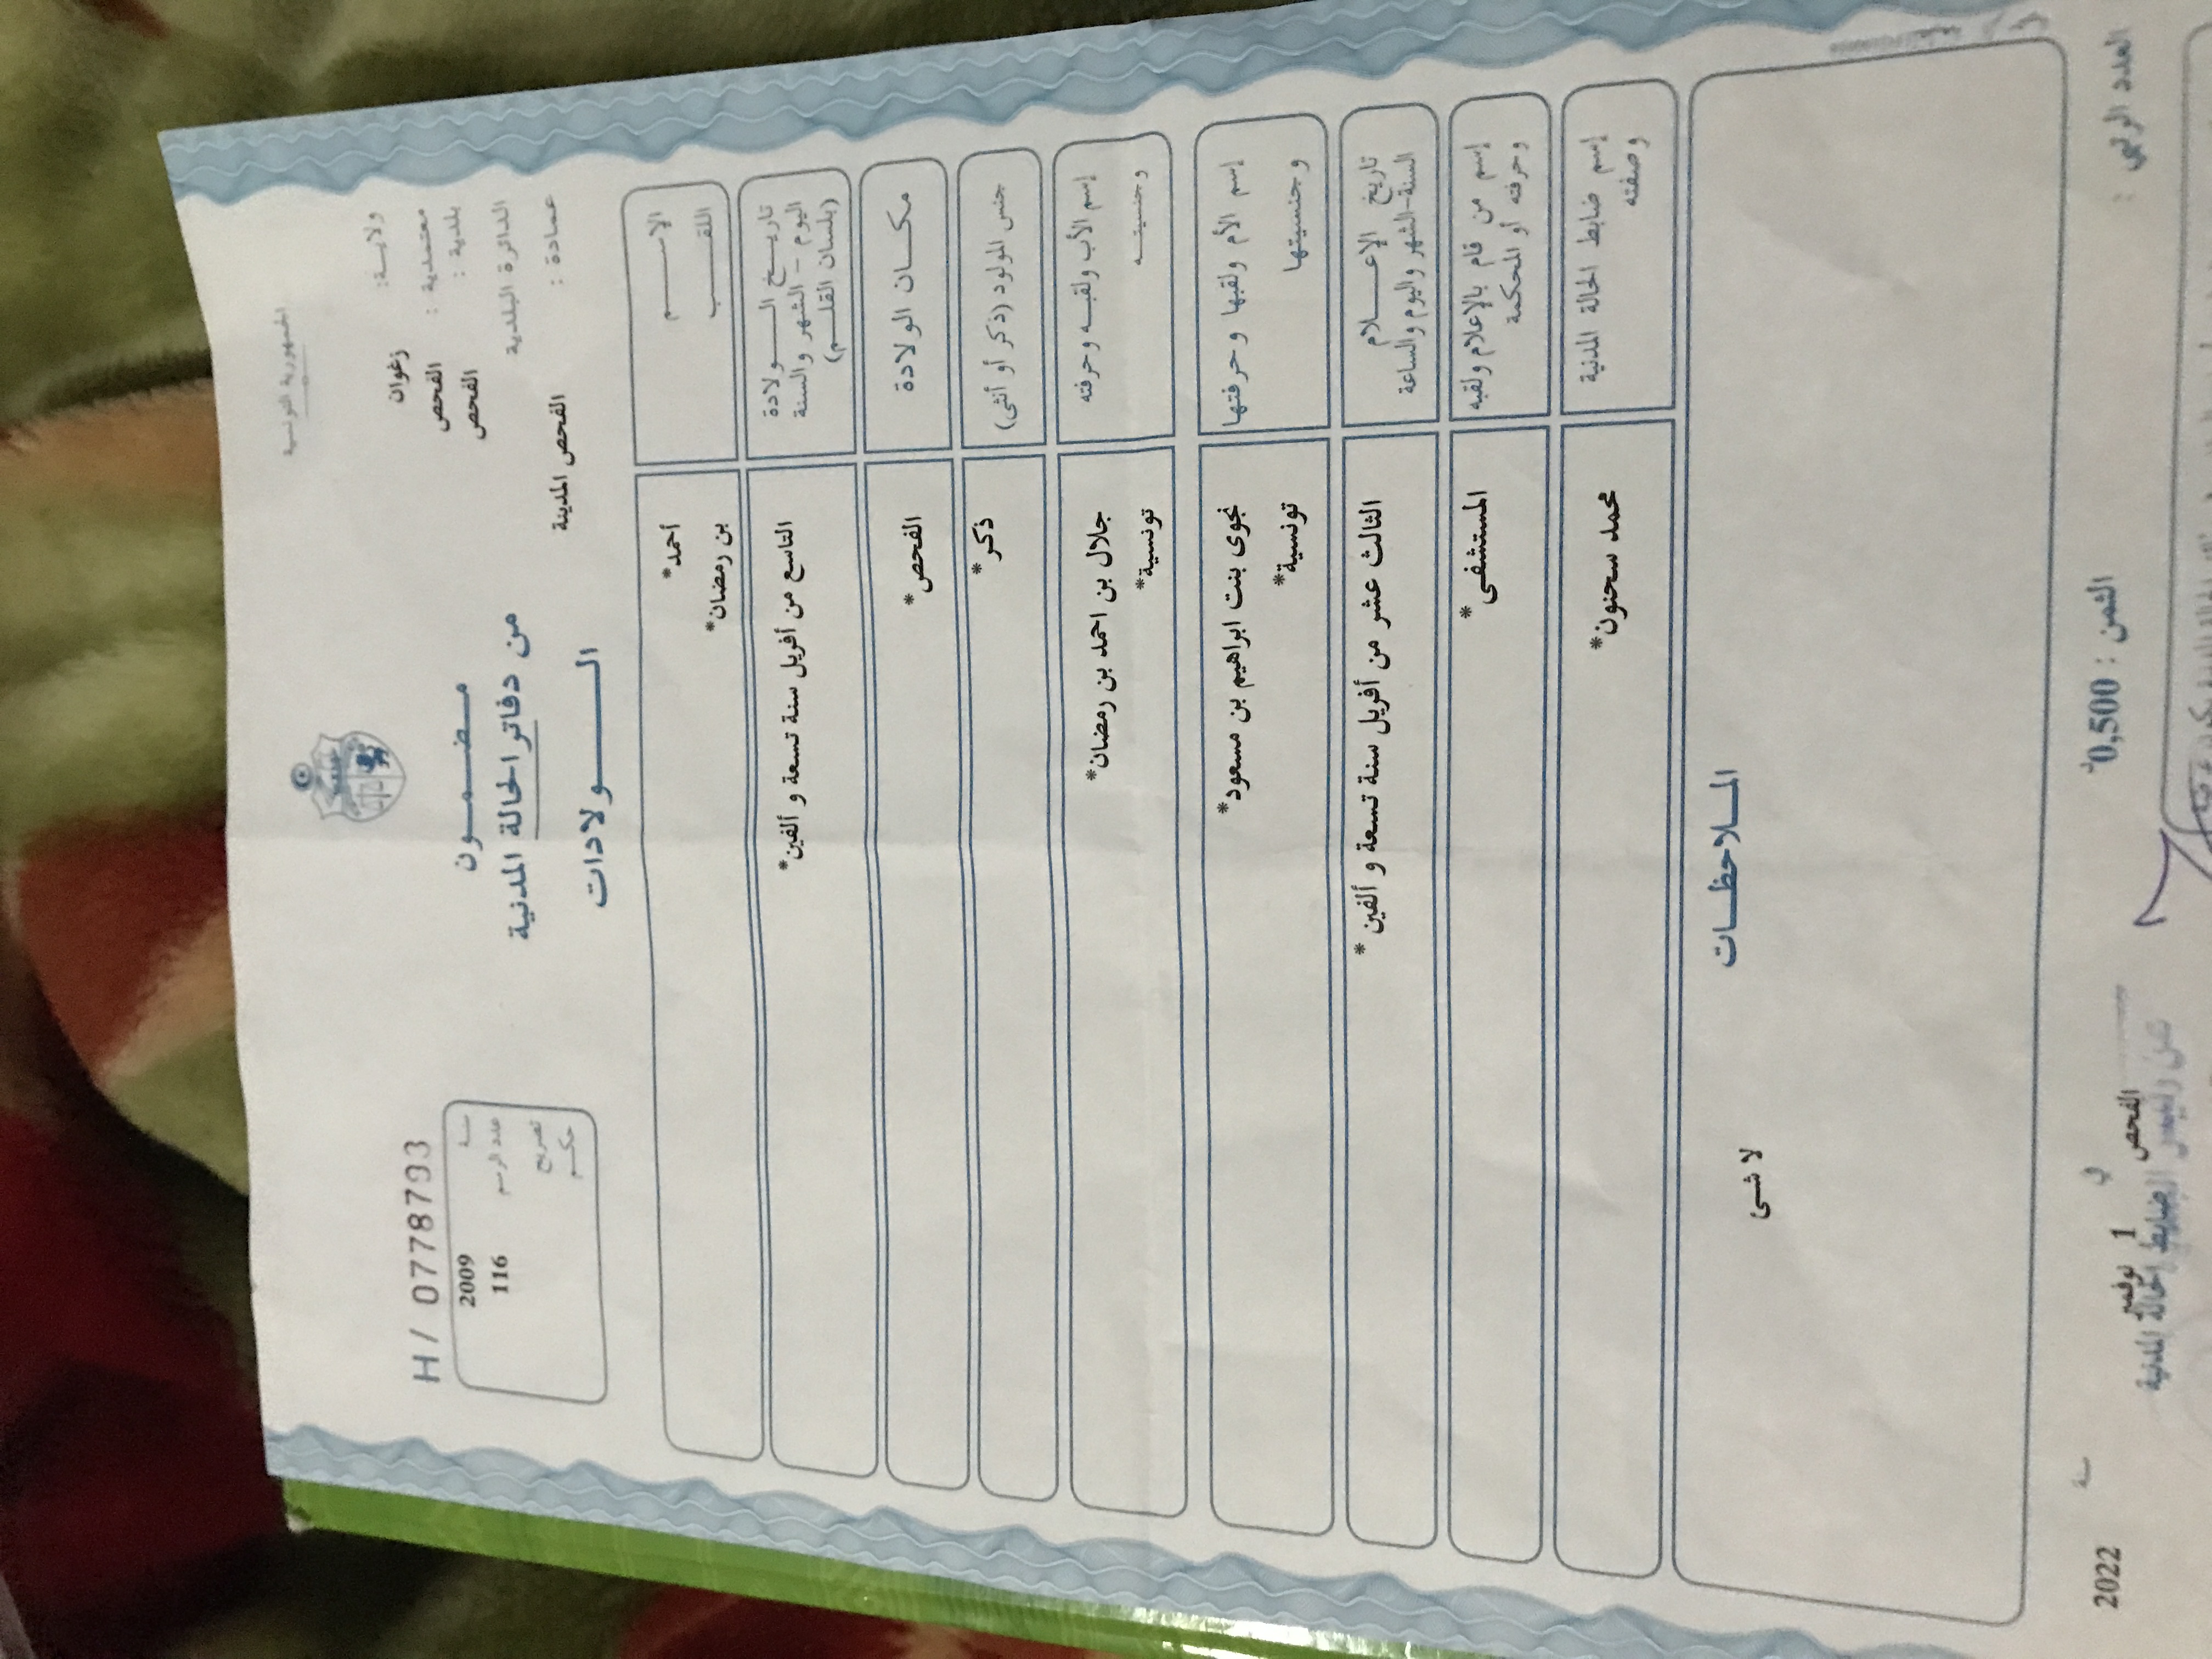 الجمهورية التونسية
ولاية: زغوان
معتمدية : الفحص
بلدية : الفحص
الدائرة البلدية
عمادة : الفحص المدينة
مضمون
من دفاتر الحالة المدنية
الولادات
H / 07788793
سنة 2009
عدد الرسم 116
تصريح
حكم
الاسم أحمد*
اللقب بن رمضان*
تاريخ الولادة
اليوم - الشهر والسنة
(بلسان القلم)
التاسع من أفريل سنة تسعة و ألفين*
مكان الولادة الفحص*
جنس المولود (ذكر أو أنثى) ذكر*
إسم الأب ولقبه وحرفته جلال بن احمد بن رمضان*
وجنسيته تونسية*
إسم الأم ولقبها وحرفتها نجوى بنت ابراهيم بن مسعود*
وجنسيتها تونسية*
تاريخ الإعلام
السنة-الشهر واليوم والساعة
الثالث عشر من أفريل سنة تسعة و ألفين *
إسم من قام بالإعلام ولقبه
وحرفته أو المحكمة
المستشفى *
إسم ضابط الحالة المدنية
وصفته
محمد سحنون*
الملاحظات
لا شئ
العدد الرتبي :
الثمن : 0,500د
الفحص في 1 نوفمبر سنة 2022
عن رئيس
ضابط الحالة المدنية